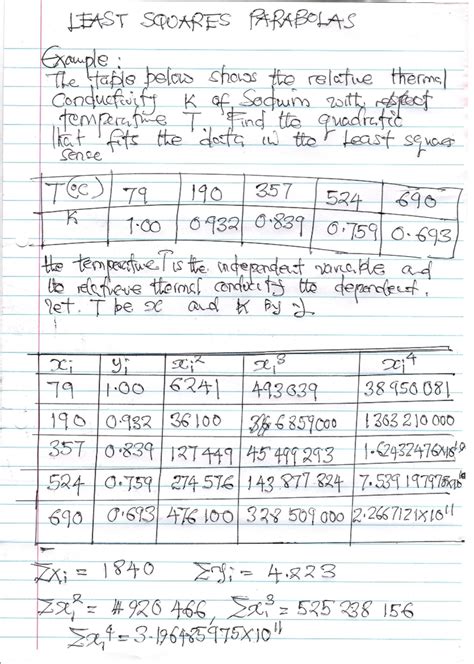 LEAST SQUARES PARABOLAS
Example:
The table below shows the relative thermal
Conductivity K of Sodium with respect
temperature T. Find the quadratic
that fits the data in the Least squares
sence
T(°C) 79 190 357 524 690
K 1.00 0.932 0.839 0.759 0.693
the temperature T is the independent variable and
the relative thermal conductity the dependent.
Let T be x and K by y.
xi yi xi² xi³ xi⁴
79 1.00 6241 493039 38950081
190 0.932 36100 6859000 1303210000
357 0.839 127449 45499293 1.62432476x10¹⁰
524 0.759 274576 143877824 7.539197975x10¹⁰
690 0.693 476100 328509000 2.2667121x10¹¹
Σxi = 1840 Σyi = 4.223
Σxi² = 920466, Σxi³ = 525238156
Σxi⁴ = 3.196485975x10¹¹